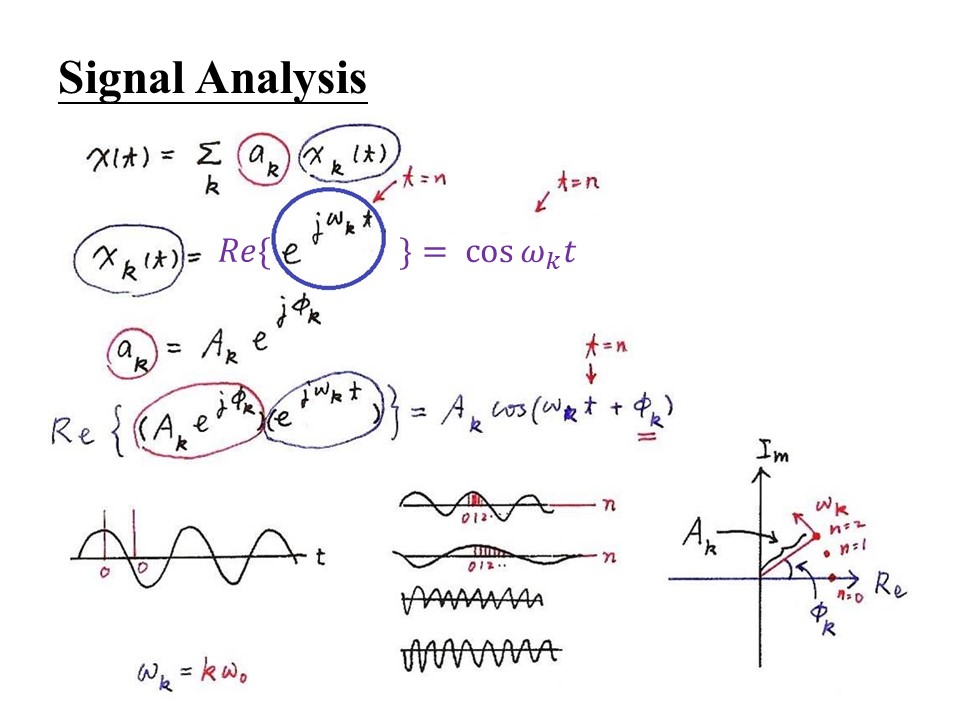 Signal Analysis
x(t) = Σ a_k x_k(t)
k
t=n t=n
x_k(t) = Re{ e^{jω_k t} } = cos ω_k t
a_k = A_k e^{jϕ_k}
t=n
Re { (A_k e^{jϕ_k})(e^{jω_k t}) } = A_k cos(ω_k t + ϕ_k)
Im
n
0 1 2 ...
ω_k
n=2
A_k
n=1
t
0 0
n
0 1 2 ..
Re
n=0
ϕ_k
ω_k = kω_0